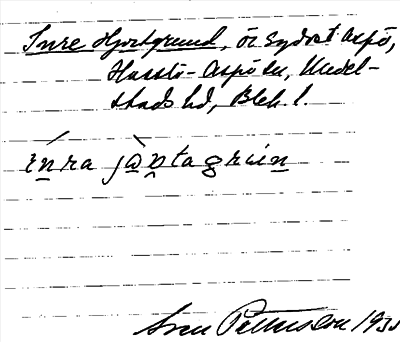 Inre Hjortgrund, ö sydost Aspö,
Hasslö-Aspö sn, Medel-
stads hd, Blek. l.
ínra jàptagrun
Sven Petterson 193